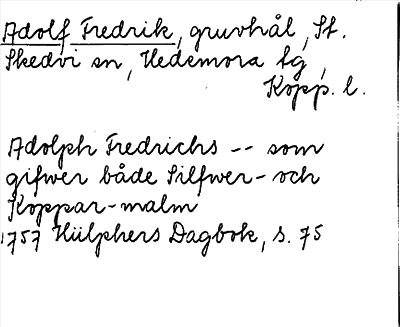 Adolf Fredrik, gruvhål, St.
Skedvi sn, Hedemora tg,
Kopp. l.
Adolph Fredrichs -- som
gifwer både Silfwer- och
Koppar-malm
1757 Hülphers Dagbok, s. 75